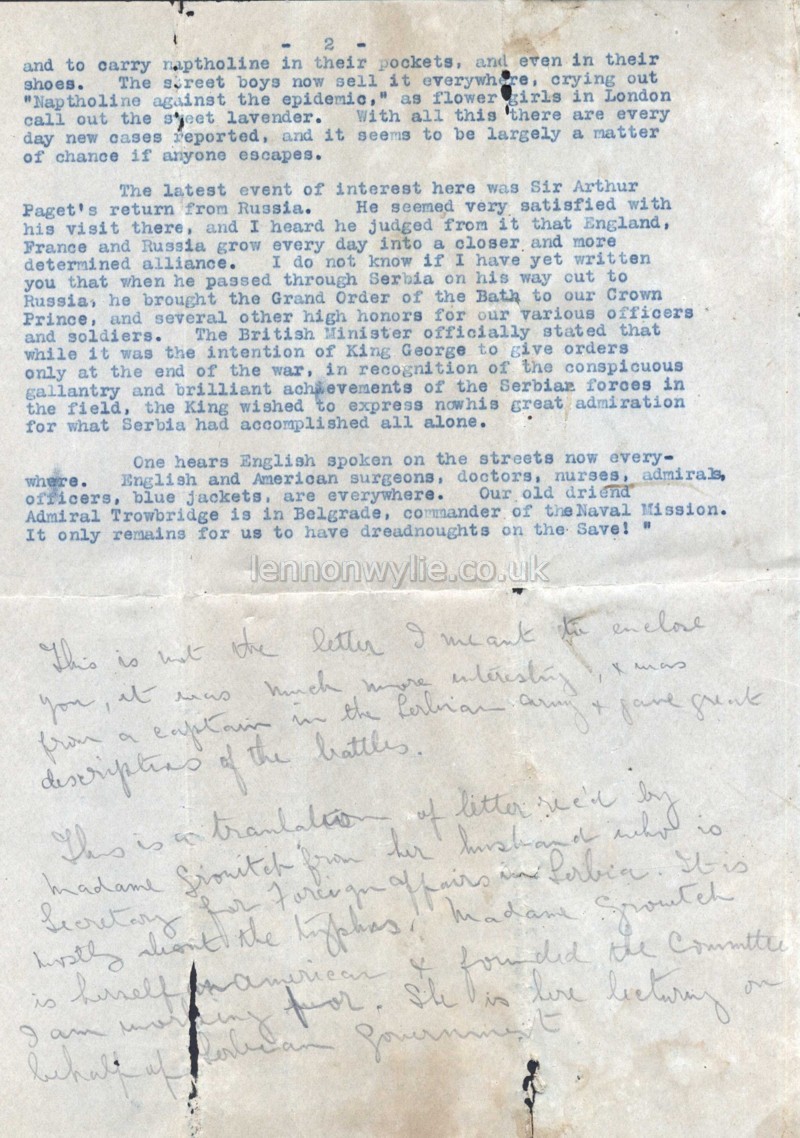 - 2 -
and to carry naptholine in their pockets, and even in their
shoes. The street boys now sell it everywhere, crying out
"Naptholine against the epidemic," as flower girls in London
call out the sweet lavender. With all this there are every
day new cases reported, and it seems to be largely a matter
of chance if anyone escapes.
The latest event of interest here was Sir Arthur
Paget's return from Russia. He seemed very satisfied with
his visit there, and I heard he judged from it that England,
France and Russia grow every day into a closer and more
determined alliance. I do not know if I have yet written
you that when he passed through Serbia on his way out to
Russia, he brought the Grand Order of the Bath to our Crown
Prince, and several other high honors for our various officers
and soldiers. The British Minister officially stated that
while it was the intention of King George to give orders
only at the end of the war, in recognition of the conspicuous
gallantry and brilliant achievements of the Serbian forces in
the field, the King wished to express nowhis great admiration
for what Serbia had accomplished all alone.
One hears English spoken on the streets now every-
where. English and American surgeons, doctors, nurses, admirals,
officers, blue jackets, are everywhere. Our old driend
Admiral Trowbridge is in Belgrade, commander of theNaval Mission.
It only remains for us to have dreadnoughts on the Save! "
lennonwylie.co.uk
This is not the letter I meant to enclose
you, it was much more interesting, & was
from a captain in the Serbian army & gave great
descriptions of the battles.
This is a translation of letter rec'd by
Madame Grouitch from her husband who is
Secretary for Foreign Affairs in Serbia. It is
mostly about the typhus. Madame Grouitch
is herself an American & founded the Committee
I am working for. She is here lecturing on
behalf of Serbian Government